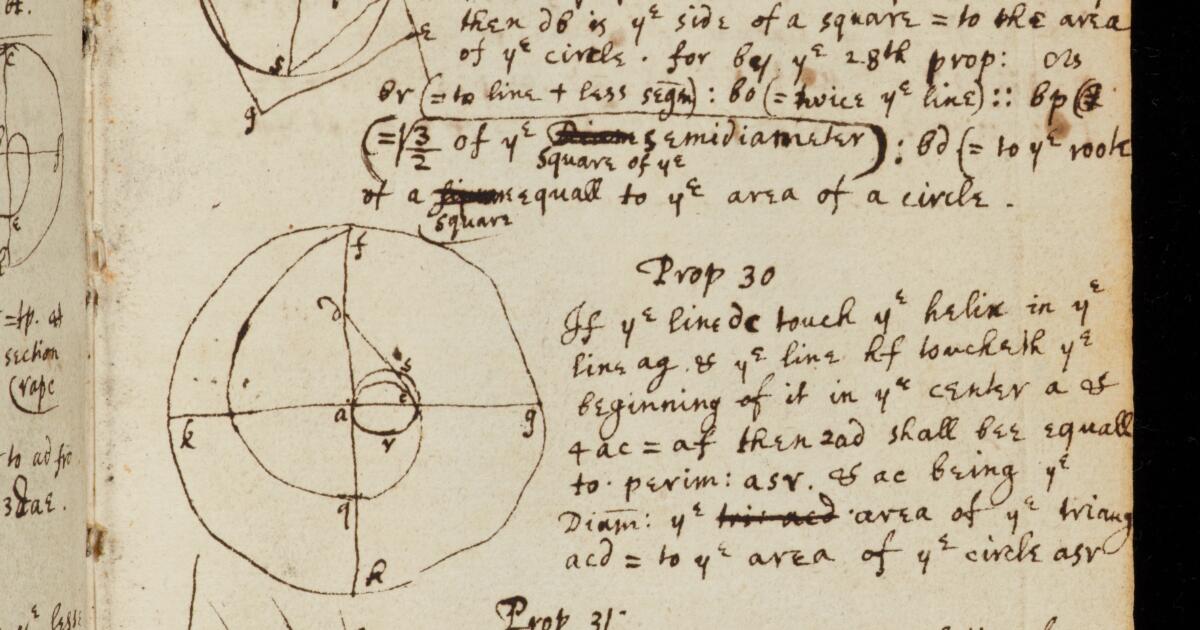 then db is yᵉ side of a square = to the area
of yᵉ circle. for by yᵉ 28th prop: as
br (= to line + less segm̄) : bo (= twice yᵉ line) :: bp
(= √3/2 of yᵉ semidiameter) : bd (= to yᵉ roote
square of yᵉ
of a equall to yᵉ area of a circle.
square
Prop 30
If yᵉ line dc touch yᵉ helix in yᵉ
line ag. & yᵉ line kf toucheth yᵉ
beginning of it in yᵉ center a &
4ac = af then 2ad shall bee equall
to perim: asr. & ac being yᵉ
Diam̄: yᵉ area of yᵉ triang
acd = to yᵉ area of yᵉ circle asr
Prop 31
s
e
g
f
d
s
c
a
r
k
g
q
k
=tp. at
section
(rape
to ad fro
yᵉ less